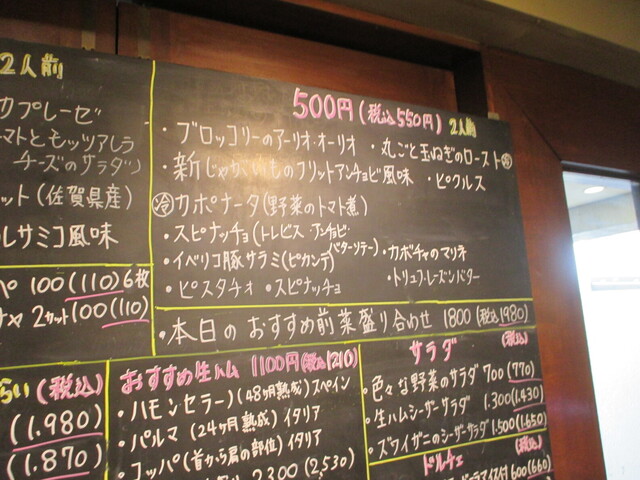 2人前
カプレーゼ
トマトとモッツァレラ
チーズのサラダ)
ット(佐賀県産)
ルサミコ風味
100(110)6枚
2カット100(110)
500円(税込550円)2人前
・ブロッコリーのアーリオ・オーリオ ・丸ごと玉ねぎのロースト
・新じゃがいものフリットアンチョビ風味 ・ピクルス
冷カポナータ(野菜のトマト煮)
・スピナッチョ(トレビス・アンチョビ・
バターソテー)
・イベリコ豚サラミ(ピカンテ) ・カボチャのマリネ
・ピスタチオ ・スピナッチョ ・トリュフ・レーズンバター
・本日のおすすめ前菜盛り合わせ 1800(税込1980)
らい(税込)
(1.980)
(1.870)
おすすめ生ハム 1100円(税込1210)
・ハモンセラーノ(48ヶ月熟成)スペイン
・パルマ(24ヶ月熟成)イタリア
・コッパ(首から肩の部位)イタリア
2300(2,530)
サラダ (税込)
・色々な野菜のサラダ 700(770)
・生ハムシーザーサラダ 1.300(1.430)
・ズワイガニのシーザーサラダ 1.500(1.650)
ドルチェ (税込)
アイス付 600(660)